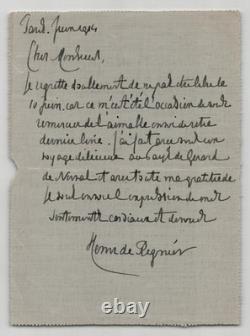 Cher Monsieur,
Je regrette de ne pas être libre le
10 juin, car ce m'eût été l'occasion de
remercier de l'aimable envoi de votre
dernier livre. J'ai fait avec vous un
voyage délicieux au pays de Gérard
de Nerval et avec toute ma gratitude
je vous envoie l'expression de mes
sentiments cordiaux et dévoués
Henri de Régnier